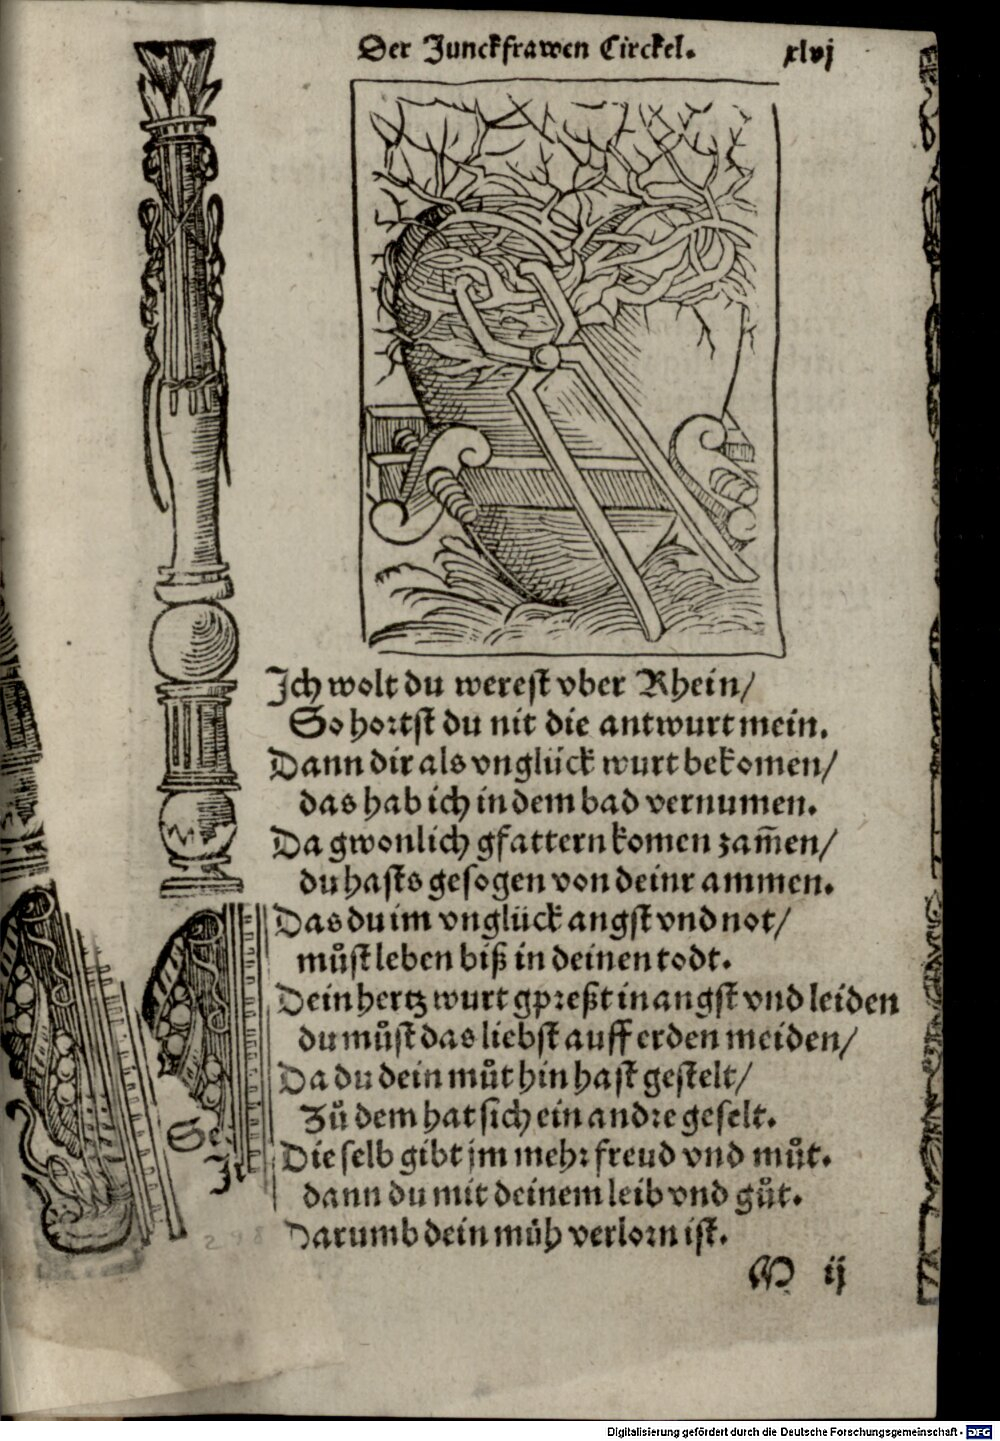 Der Junckfrawen Circkel. xlvj
Ich wolt du werest vber Rhein/
So hortst du nit die antwurt mein.
Dann dir als vnglück wurt bekomen/
das hab ich in dem bad vernumen.
Da gwonlich gfattern komen zam̄en/
du hasts gesogen von deinr ammen.
Das du im vnglück angst vnd not/
můst leben biß in deinen todt.
Dein hertz wurt gpreßt in angst vnd leiden
du můst das liebst auff erden meiden/
Da du dein můt hin hast gestelt/
Zů dem hat sich ein andre geselt.
Die selb gibt jm mehr freud vnd můt.
dann du mit deinem leib vnd gůt.
Darumb dein müh verlorn ist.
M ij
Se
Digitalisierung gefördert durch die Deutsche Forschungsgemeinschaft - DFG